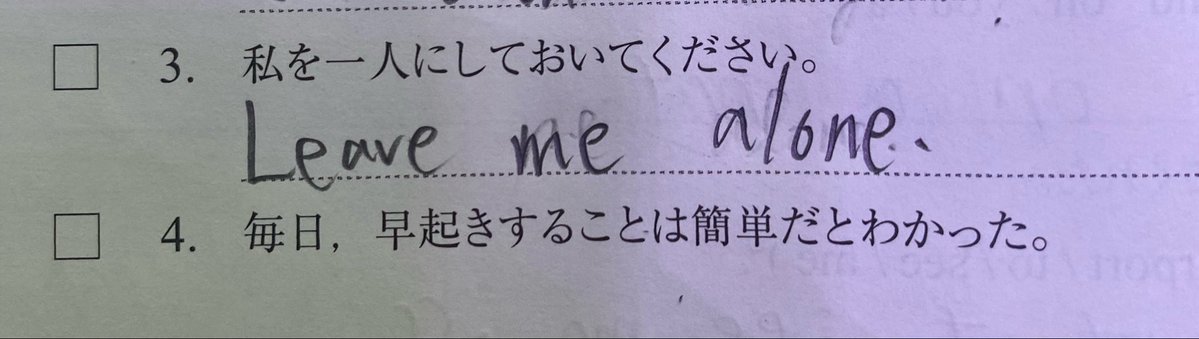 3. 私を一人にしておいてください。
Leave me alone.
4. 毎日，早起きすることは簡単だとわかった。